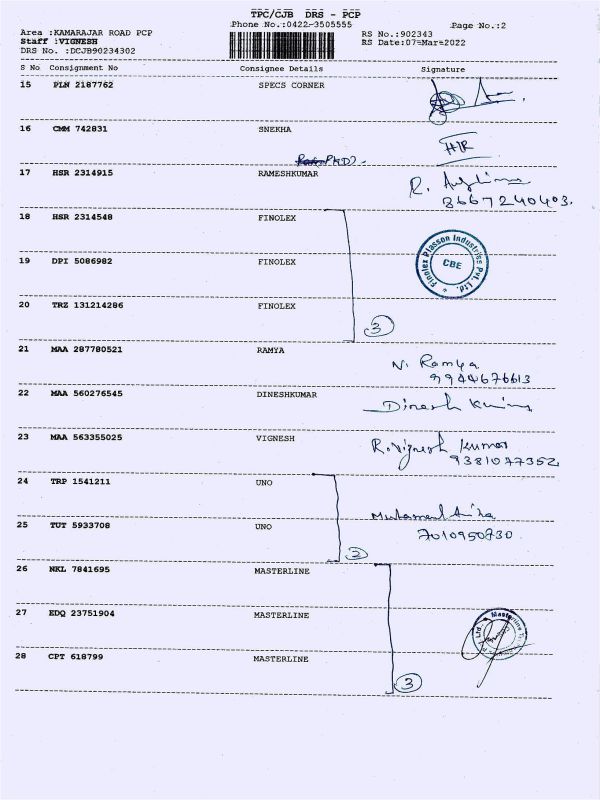 TPC/CJB DRS - PCP
Phone No.:0422-3505555 Page No.:2
Area :KAMARAJAR ROAD PCP RS No.:902343
Staff :VIGNESH RS Date:07-Mar-2022
DRS No. :DCJB90234302
S No Consignment No Consignee Details Signature
15 PLN 2187762 SPECS CORNER
16 CMM 742831 SNEKHA
17 HSR 2314915 RAMESHKUMAR R.
8667240403.
18 HSR 2314548 FINOLEX
19 DPI 5086982 FINOLEX Finolex Plasson Industries Pvt. Ltd. CBE
20 TRZ 131214286 FINOLEX
3
21 MAA 287780521 RAMYA N. Ramya
9944676613
22 MAA 560276545 DINESHKUMAR Dinesh Kumar
23 MAA 563355025 VIGNESH R. Vignesh Kumar
9381077352
24 TRP 1541211 UNO
25 TUT 5933708 UNO
7010950730
2
26 NKL 7841695 MASTERLINE
27 EDQ 23751904 MASTERLINE Masterline
28 CPT 618799 MASTERLINE
3